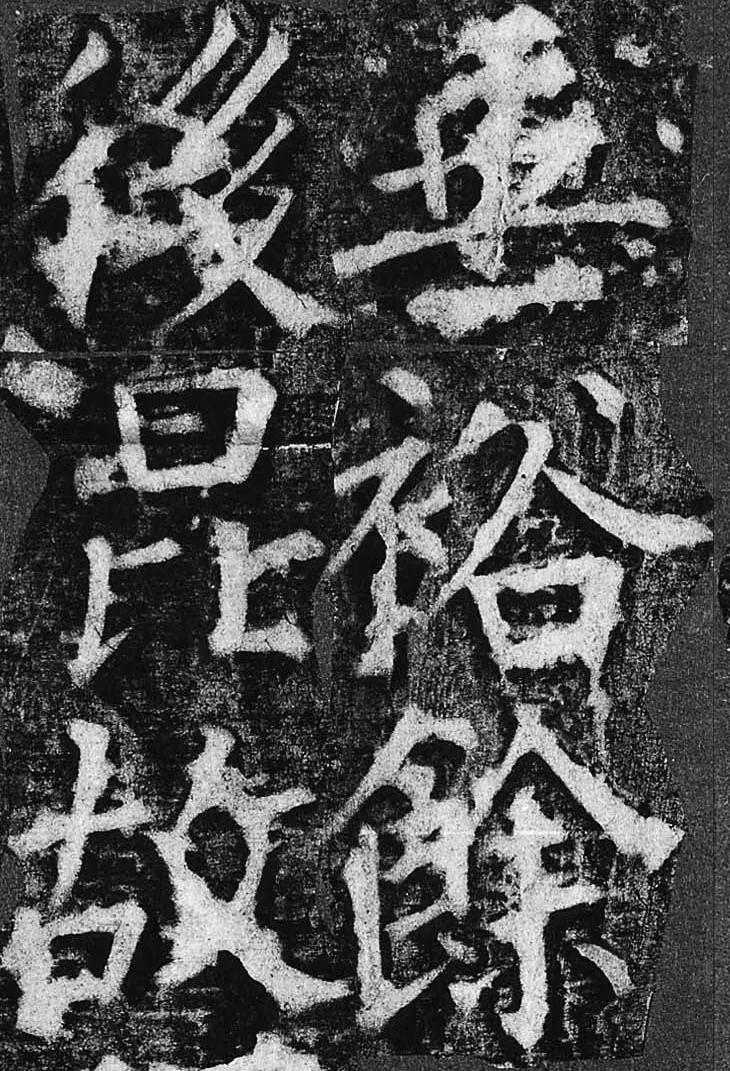 垂裕餘
後昆故